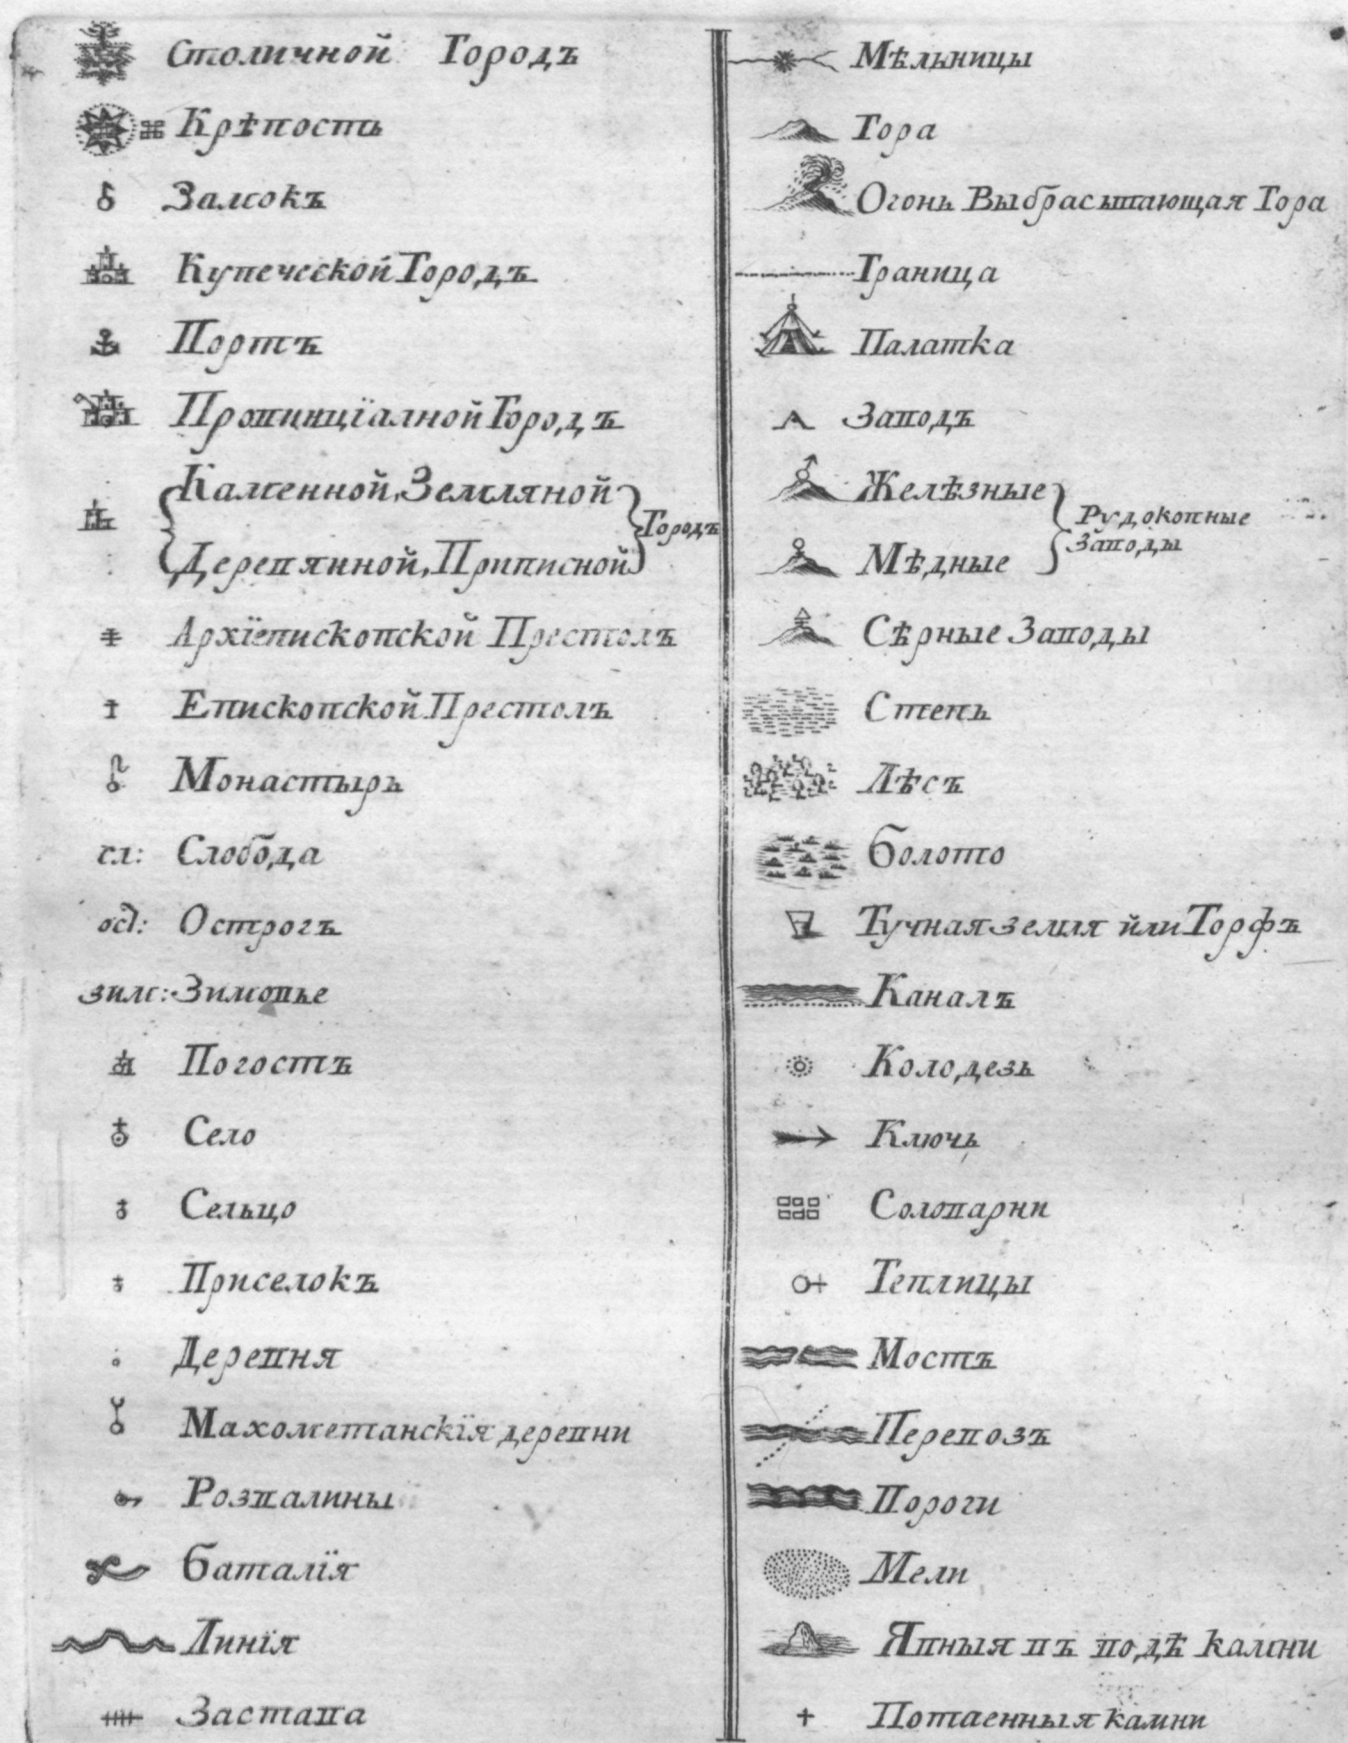 Столичной Городъ
Крѣпость
Замокъ
Купеческой Городъ
Портъ
Провинцїалной Городъ
Каменной, Земляной
Деревянной, Приписной
Городъ
Архїепископской Престолъ
Епископской Престолъ
Монастырь
сл: Слобода
ост: Острогъ
зим: Зимовье
Погостъ
Село
Сельцо
Приселокъ
Деревня
Махометанскїя деревни
Розвалины
Баталїя
Линїя
Застава
Мѣльницы
Гора
Огонь Выбрасывающая Гора
Граница
Палатка
Заводъ
Желѣзные
Мѣдные
Рудокопные
Заводы
Сѣрные Заводы
Степь
Лѣсъ
Болото
Тучная земля йли Торфъ
Каналъ
Колодезь
Ключь
Соловарни
Теплицы
Мостъ
Перевозъ
Пороги
Мели
Явныя въ водѣ камни
Потаенныя камни